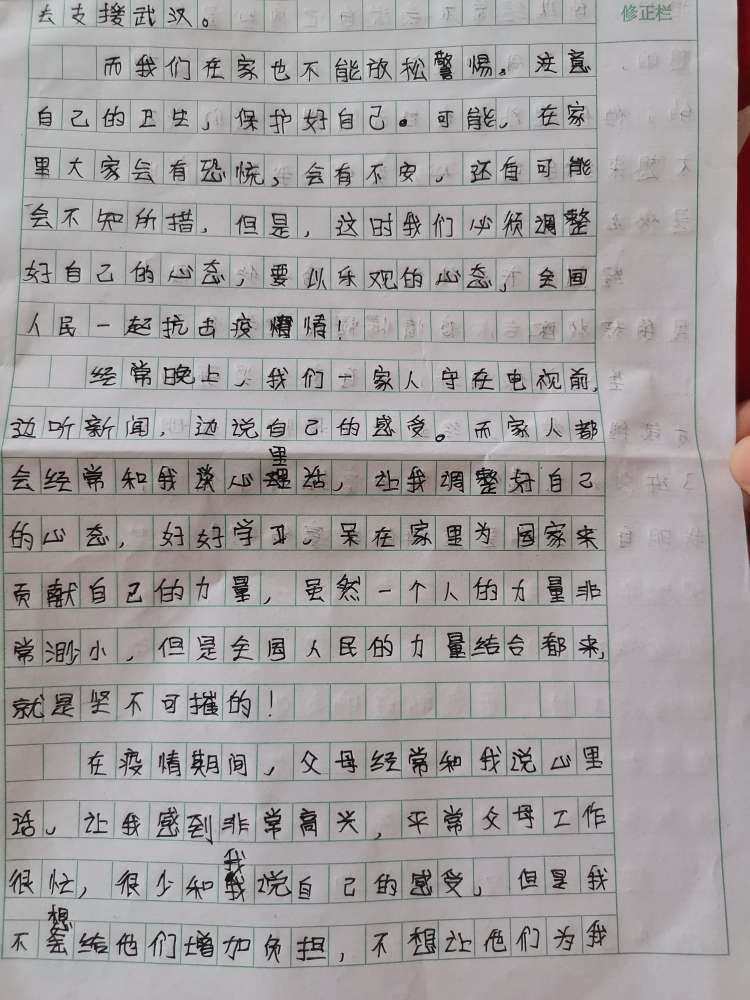 去支援武汉。
修正栏
而我们在家也不能放松警惕。注意
自己的卫生，保护好自己。可能，在家
里大家会有恐慌，会有不安，还有可能
会不知所措，但是，这时我们必须调整
好自己的心态，要以乐观的心态，全国
人民一起抗击疫情！
经常晚上，我们一家人守在电视前，
边听新闻，边说自己的感受。而家人都
会经常和我谈心里话，让我调整好自己
的心态，好好学习。呆在家里为国家来
贡献自己的力量，虽然一个人的力量非
常渺小，但是全国人民的力量结合都来，
就是坚不可摧的！
在疫情期间，父母经常和我说心里
话。让我感到非常高兴，平常父母工作
很忙，很少和我说自己的感受，但是我
不想给他们增加负担，不想让他们为我